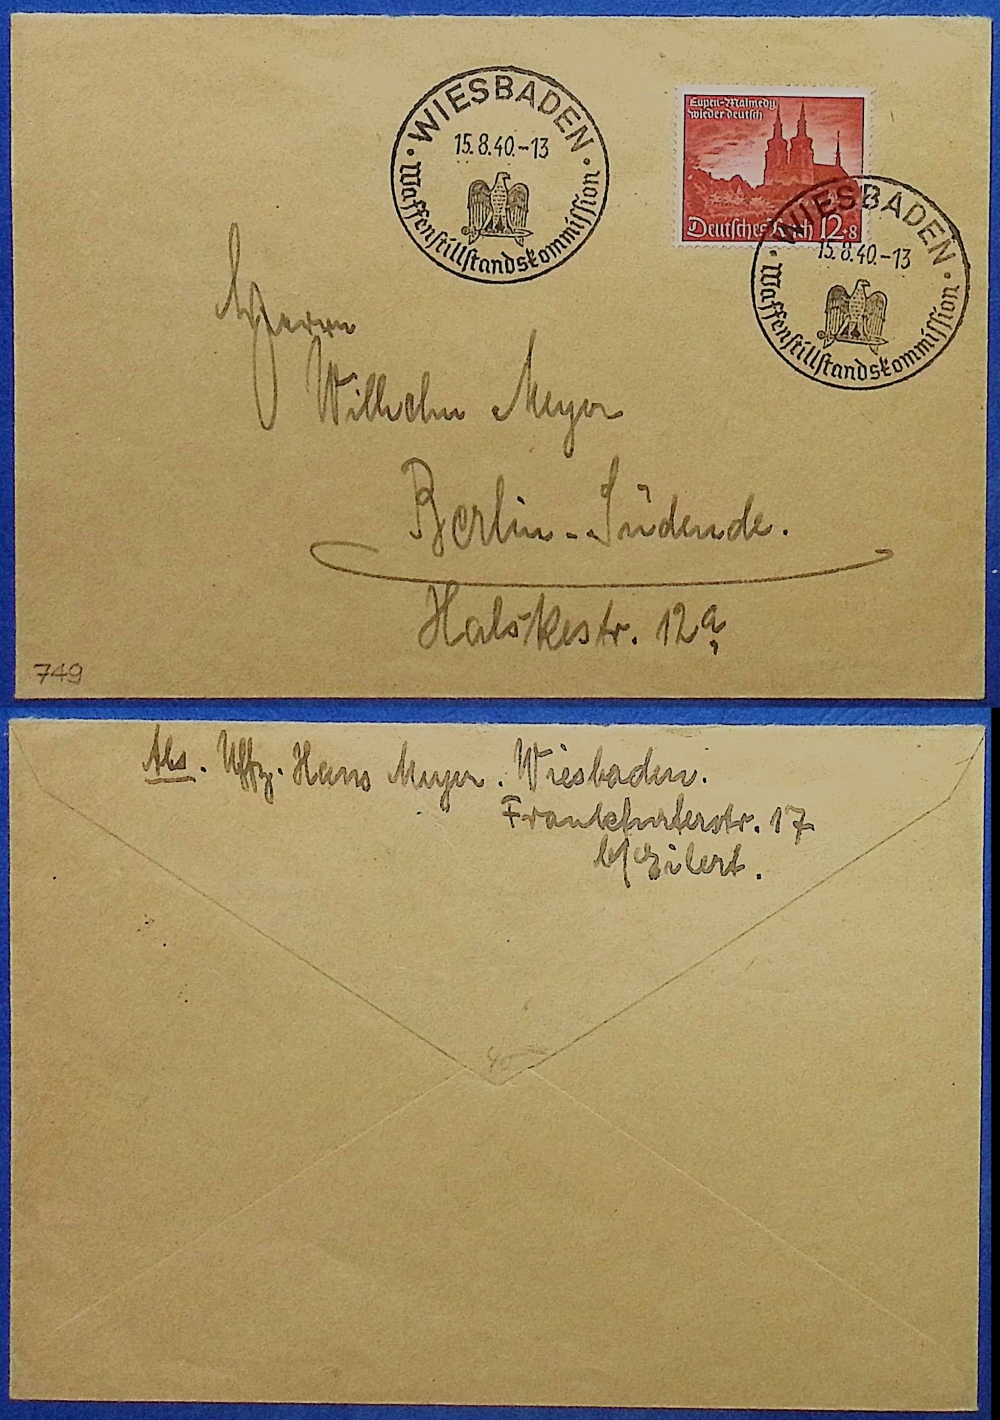 WIESBADEN
15.8.40.-13
Waffenstillstandskommission
Eupen-Malmedy
wieder deutsch
Deutsches Reich 12+8
WIESBADEN
15.8.40.-13
Waffenstillstandskommission
Herrn
Wilhelm Meyer
Berlin-Südende.
Halskestr. 12a
749
Abs. Uffz. Hans Meyer. Wiesbaden.
Frankfurterstr. 17
b/Eilert.